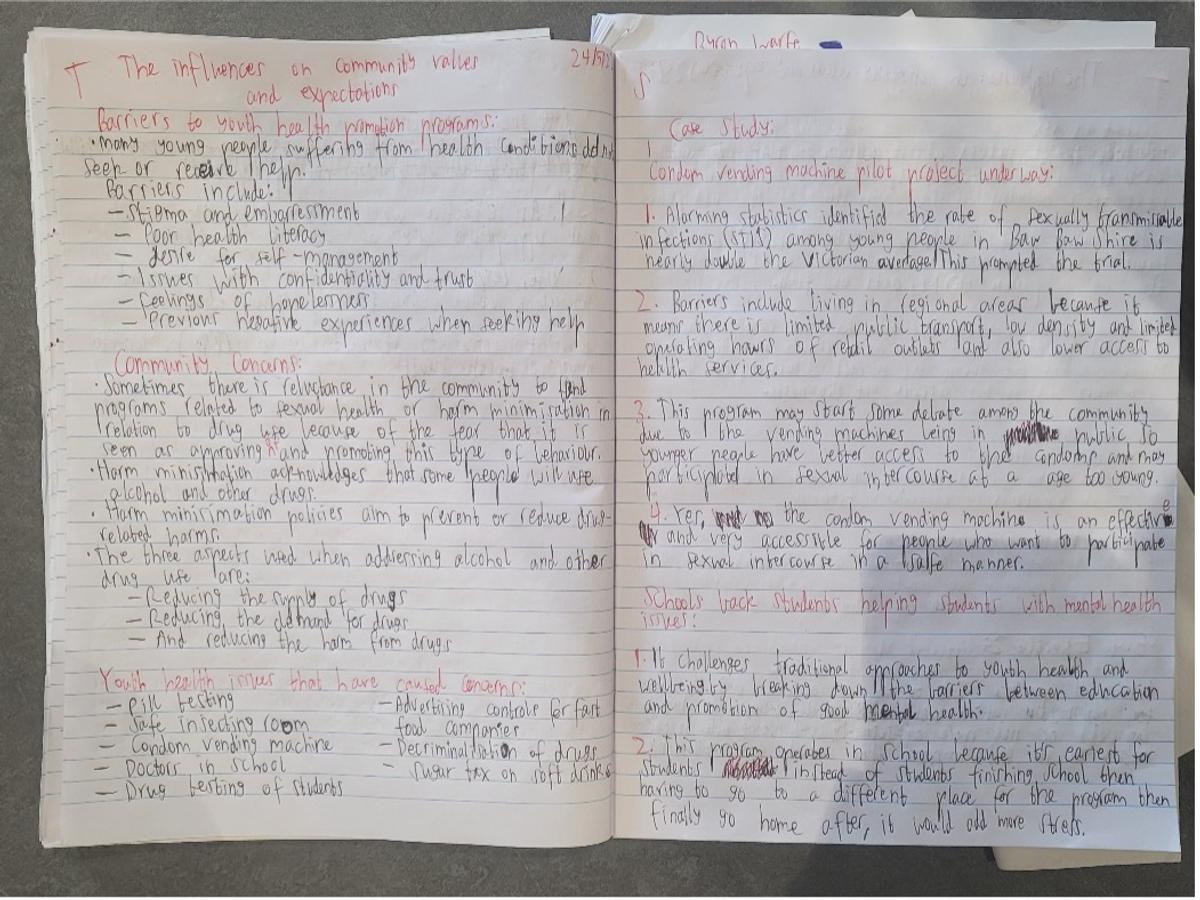 Byron Warfe
T The influences on community values 24/5/2
and expectations
Barriers to youth health promotion programs:
· Many young people suffering from health conditions do not
seek or receive help.
Barriers include:
- Stigma and embarressment
- Poor health literacy
- desire for self-management
- Issues with confidentiality and trust
- Feelings of hopelessness
- Previous negative experiences when seeking help
Community Concerns:
· Sometimes there is reluctance in the community to fund
programs related to sexual health or harm minimisation in
relation to drug use because of the fear that it is
seen as approving and promoting this type of behaviour.
· Harm minisimation acknowledges that some people will use
alcohol and other drugs.
· Harm minisimation policies aim to prevent or reduce drug-
related harms.
· The three aspects used when addressing alcohol and other
drug use are:
- Reducing the supply of drugs
- Reducing the demand for drugs
- And reducing the harm from drugs
Youth health issues that have caused concerns:
- Pill testing
- Safe injecting room
- Condom vending machine
- Doctors in school
- Drug testing of students
- Advertising controls for fast
food companies
- Decriminalisation of drugs
- Sugar tax on soft drinks
Case study:
Condom vending machine pilot project underway:
1. Alarming statistics identified the rate of sexually transmissable
infections (STI's) among young people in Baw Baw Shire is
nearly double the Victorian average. This prompted the trial.
2. Barriers include living in regional areas because it
means there is limited public transport, low density and limited
operating hours of retail outlets and also lower access to
health services.
3. This program may start some debate among the community
due to the vending machines being in public so
younger people have better access to the condoms and may
participated in sexual intercourse at a age too young.
4. Yes, the condom vending machine is an effective
and very accessible for people who want to participate
in sexual intercourse in a safe manner.
Schools back students helping students with mental health
issues:
1. It challenges traditional approaches to youth health and
wellbeing by breaking down the barriers between education
and promotion of good mental health.
2. This program operates in school because it's easiest for
students instead of students finishing school then
having to go to a different place for the program then
finally go home after, it would add more stress.